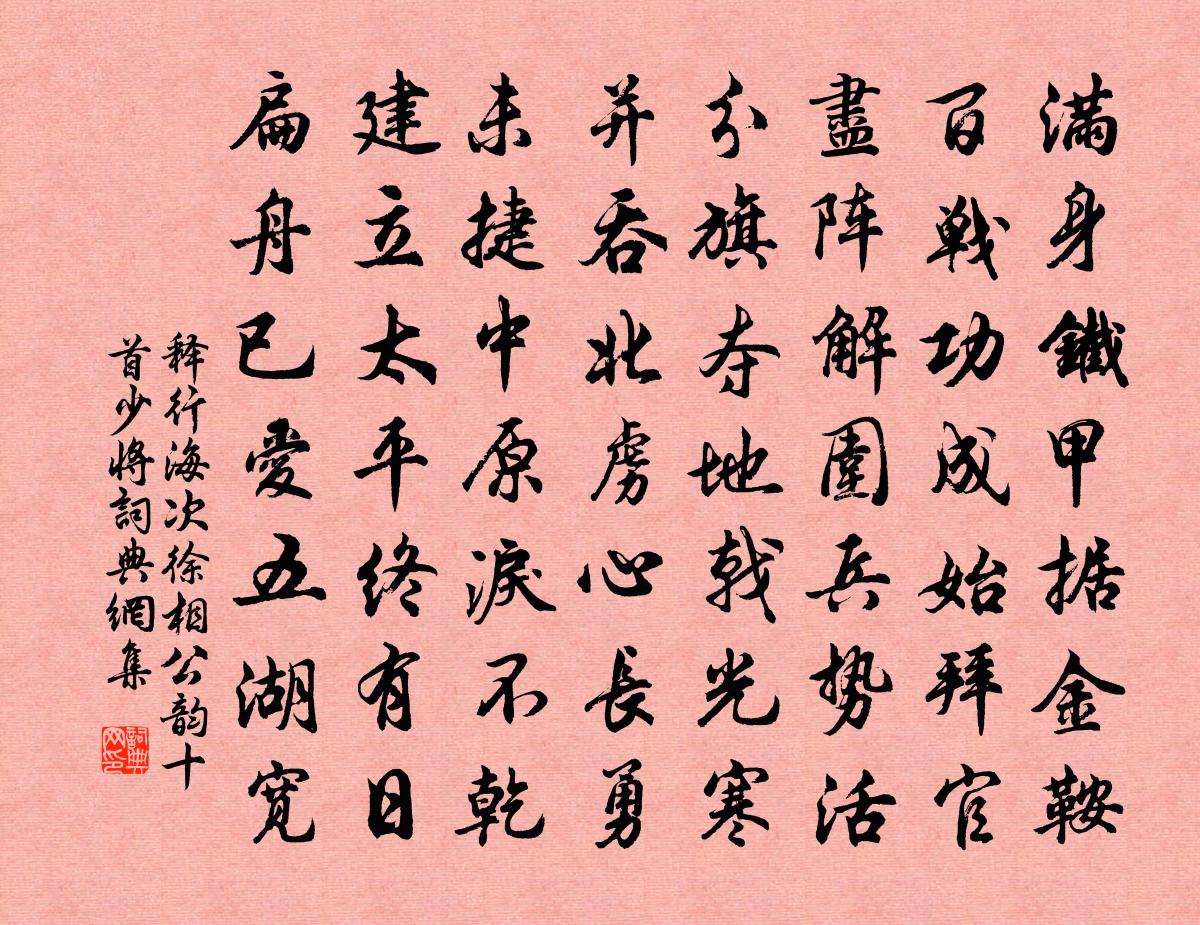 满身鐵甲据金鞍
百戦功成始拜官
盡阵解圍兵势活
分旗夺地戟光寒
并吞北虏心長勇
未捷中原淚不乾
建立太平终有日
扁舟已愛五湖寬
释行海次徐相公韵十
首少将詞典網集
詞典網印